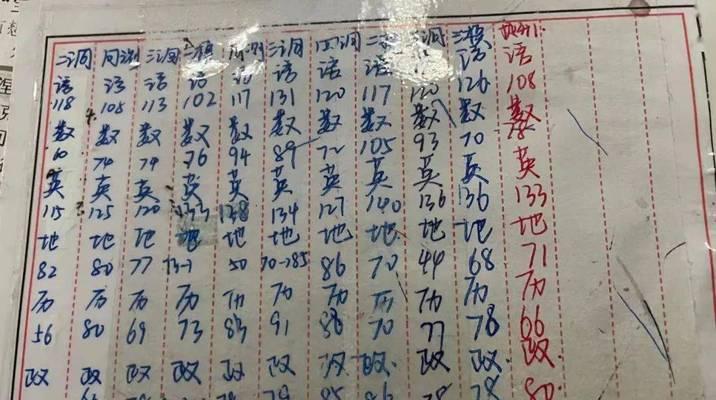 二调
语
118
数
60
英
115
地
82
历
56
政
语
105
数
70
英
125
地
80
历
80
政
二调
语
113
数
79
英
120
地
77
历
69
政
语
102
数
76
英
133
地
历
73
政
语
117
数
94
英
138
地
50
历
83
政
二调
语
131
数
89
英
134
地
70→85
历
91
政
79
四调
语
120
数
72
英
127
地
86
历
政
85
语
117
数
105
英
140
地
70
历
70
政
86
调
120
数
93
英
136
地
44
历
77
政
78
二模
语
126
数
70
英
136
地
68
历
78
政
78
语
108
数
英
133
地
71
历
66
政
80